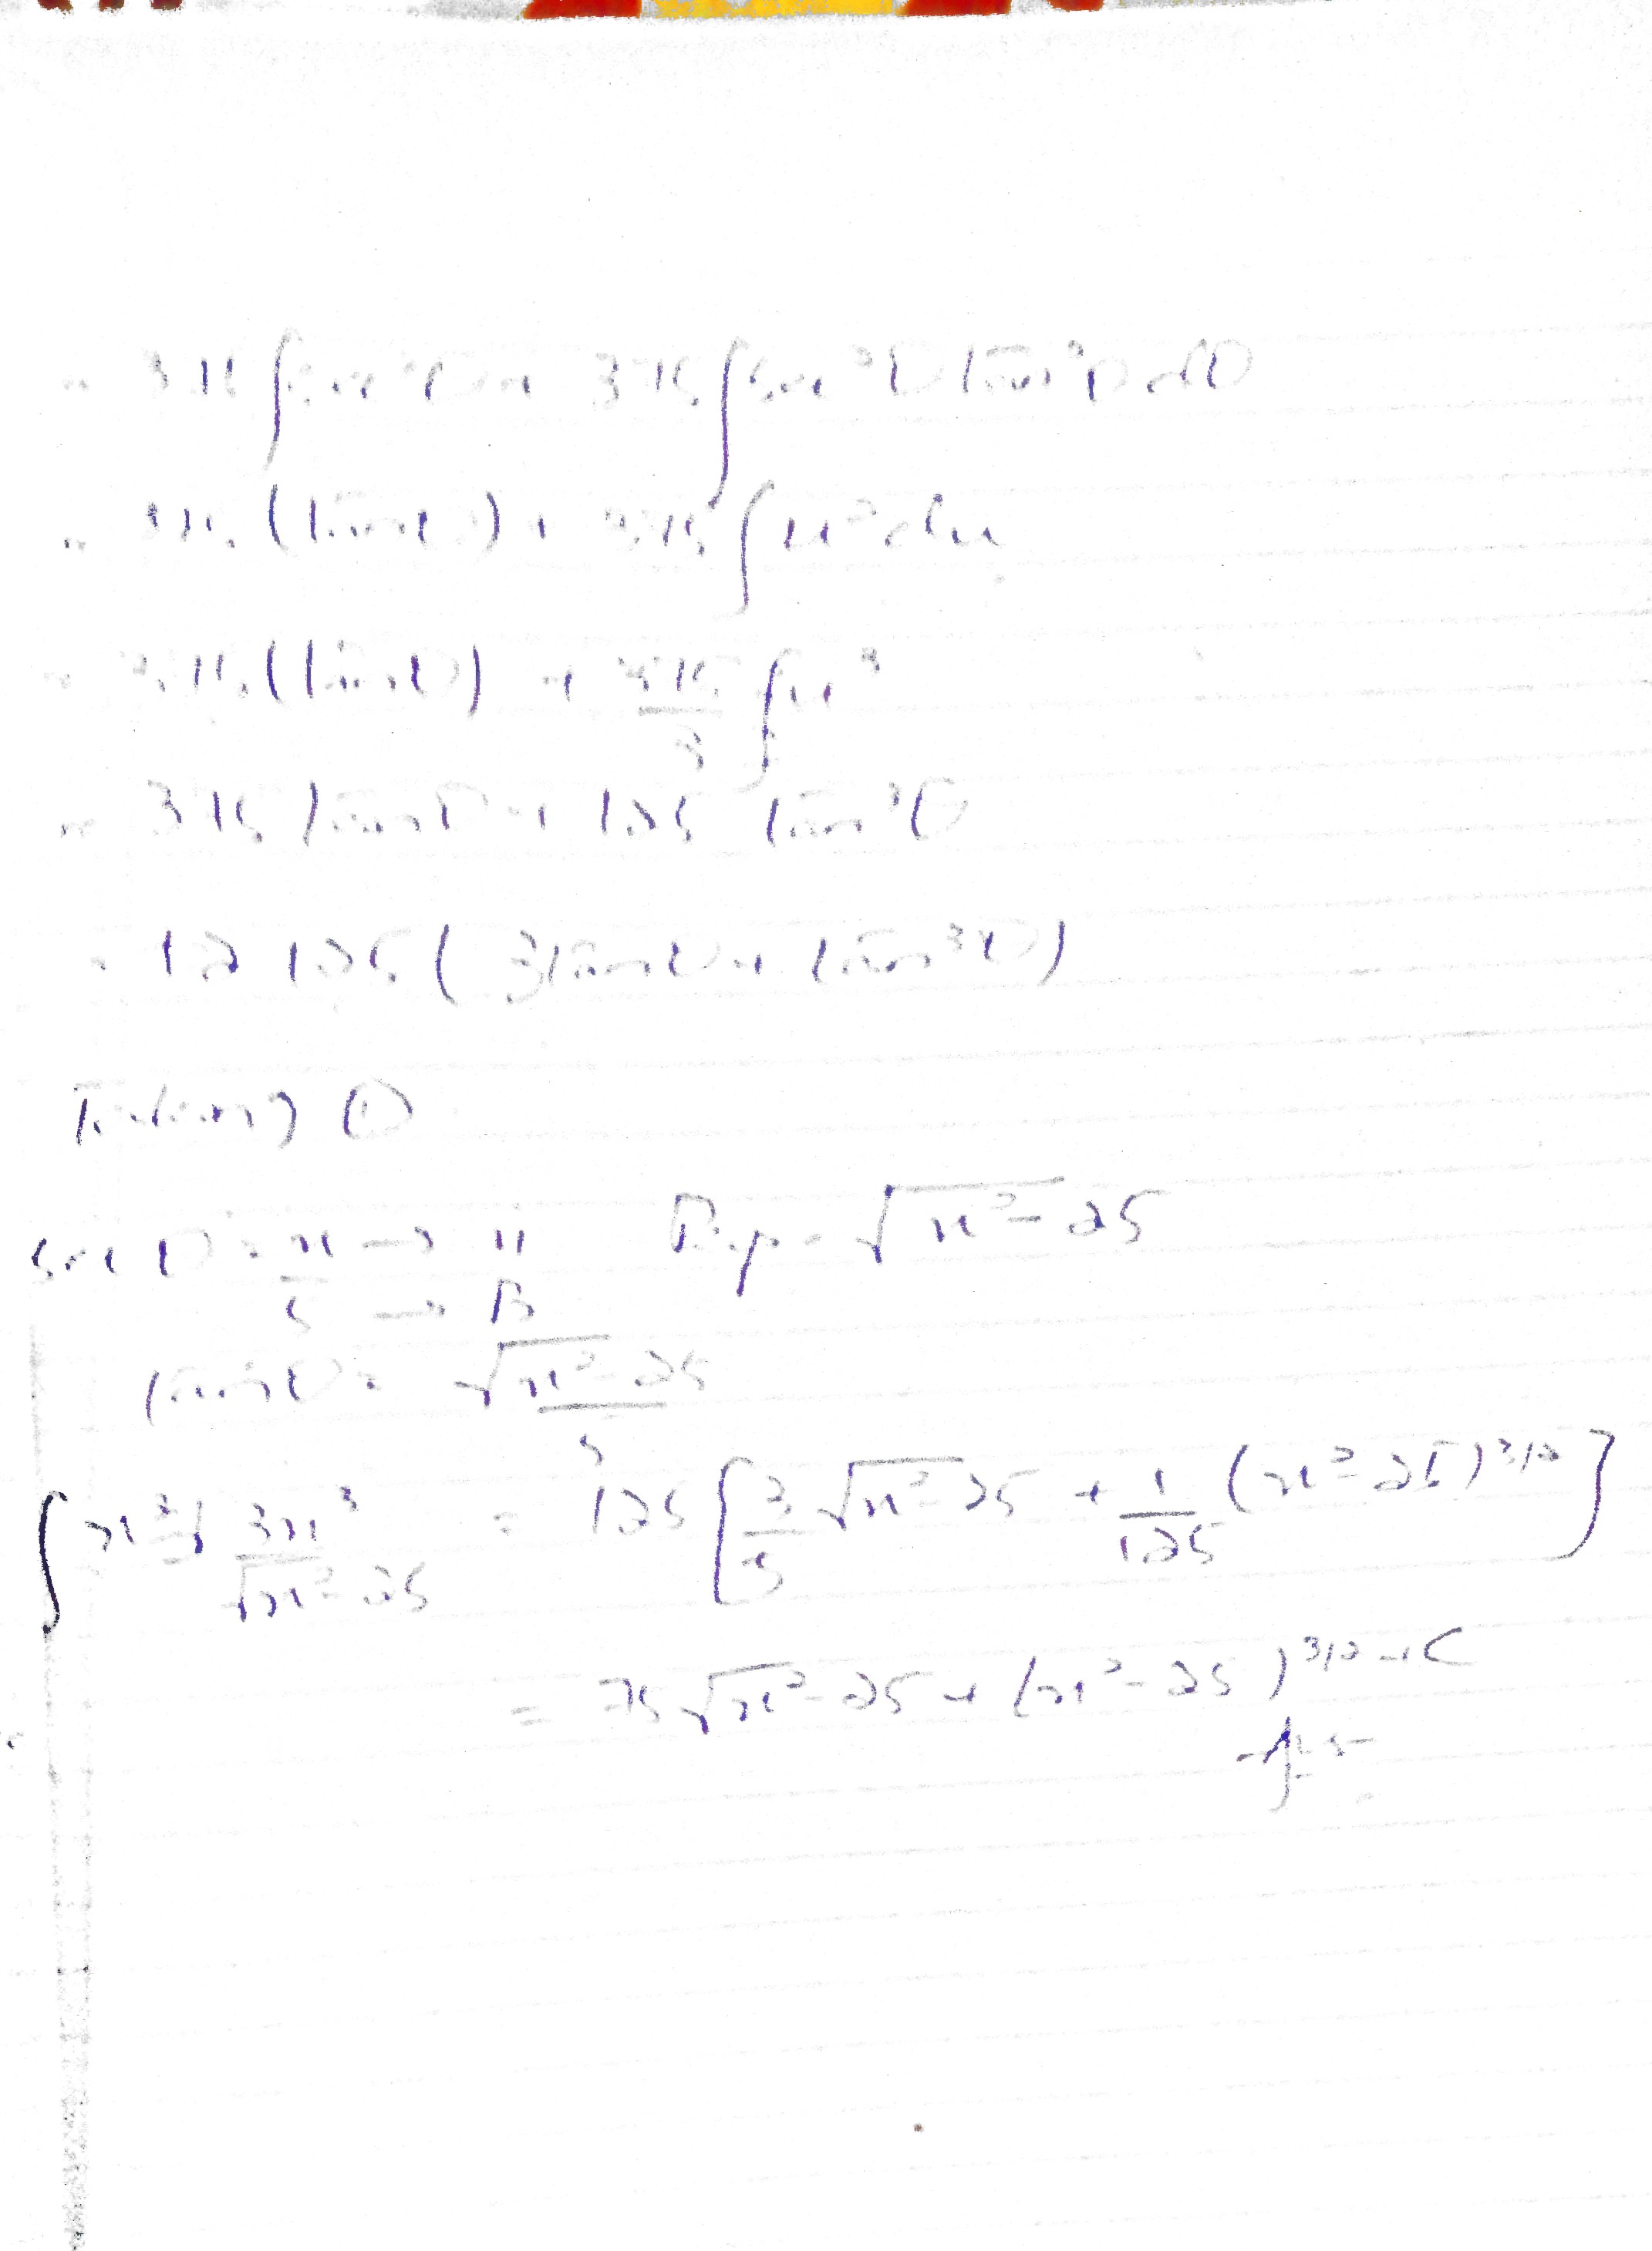 = 375 ∫sec²θ + 375 ∫sec²θ tan²θ dθ
= 375 (tanθ) + 375 ∫u² du
= 375 (tanθ) + 375/3 ∫u³
= 375 tanθ + 125 tan³θ
= 12 125 ( 3tanθ + tan³θ )
Taking ①
secθ = x/5 → H → B Perp = √x² - 25
tanθ = √x² - 25 / 5
∫ 3x³/√x² - 25 = 125 [ 3/5 √x² - 25 + 1/125 (x² - 25)^3/2 ]
= 75 √x² - 25 + (x² - 25)^3/2 + C